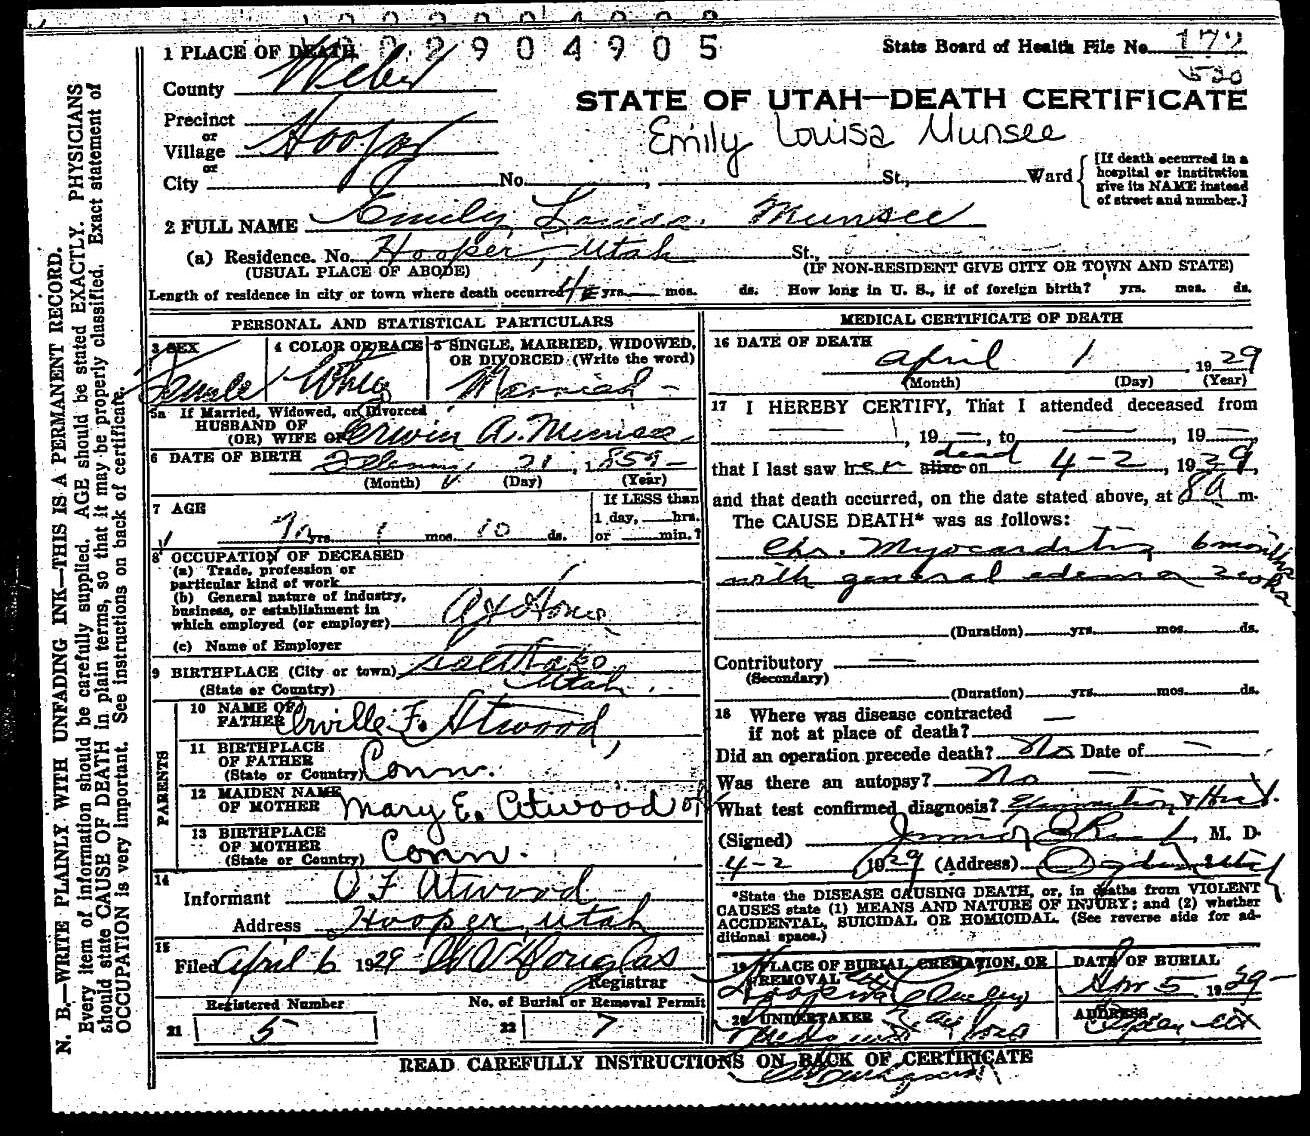 2904905
State Board of Health File No. 177
520
1 PLACE OF DEATH
County Weber
STATE OF UTAH—DEATH CERTIFICATE
Emily Louisa Munsee
Precinct
or
Village Hooper
or
City No. , St., Ward
[If death occurred in a hospital or institution give its NAME instead of street and number.]
2 FULL NAME Emily Louisa Munsee
(a) Residence. No. Hooper, Utah St.,
(USUAL PLACE OF ABODE) (IF NON-RESIDENT GIVE CITY OR TOWN AND STATE)
Length of residence in city or town where death occurred yrs. mos. ds. How long in U. S., if of foreign birth? yrs. mos. ds.
PERSONAL AND STATISTICAL PARTICULARS
3 SEX
Female
4 COLOR OR RACE
White
5 SINGLE, MARRIED, WIDOWED, OR DIVORCED (Write the word)
Married
5a If Married, Widowed, or Divorced
HUSBAND OF
(OR) WIFE OF Erwin A. Munsee
6 DATE OF BIRTH February 21, 1859
(Month) (Day) (Year)
7 AGE
70 yrs. 1 mos. 10 ds.
If LESS than
1 day, hrs.
or min.?
8 OCCUPATION OF DECEASED
(a) Trade, profession or
particular kind of work
(b) General nature of industry,
business, or establishment in
which employed (or employer) At Home
(c) Name of Employer
9 BIRTHPLACE (City or town) Salt Lake
(State or Country) Utah
PARENTS
10 NAME OF
FATHER F. Atwood
11 BIRTHPLACE
OF FATHER
(State or Country) Conn.
12 MAIDEN NAME
OF MOTHER Mary E. Atwood
13 BIRTHPLACE
OF MOTHER
(State or Country) Conn.
14
Informant O F Atwood
Address Hooper, Utah
15
Filed April 6 1929 Douglas
Registrar
Registered Number
21 5
No. of Burial or Removal Permit
22 7
MEDICAL CERTIFICATE OF DEATH
16 DATE OF DEATH
April 1 1929
(Month) (Day) (Year)
17 I HEREBY CERTIFY, That I attended deceased from
, 19 , to , 19
that I last saw her alive dead on 4-2, 1929,
and that death occurred, on the date stated above, at 8 a m.
The CAUSE DEATH* was as follows:
Chr. Myocarditis 6 months
with general edema 2 weeks
(Duration) yrs. mos. ds.
Contributory
(Secondary)
(Duration) yrs. mos. ds.
18 Where was disease contracted
if not at place of death?
Did an operation precede death? No Date of
Was there an autopsy? No
What test confirmed diagnosis? Examination & Hist.
(Signed) M. D.
4-2 1929 (Address) Ogden Utah
*State the DISEASE CAUSING DEATH, or, in deaths from VIOLENT
CAUSES state (1) MEANS AND NATURE OF INJURY; and (2) whether
ACCIDENTAL, SUICIDAL OR HOMICIDAL. (See reverse side for ad-
ditional space.)
19 PLACE OF BURIAL, CREMATION, OR
REMOVAL
DATE OF BURIAL
Apr 5 1929
20 UNDERTAKER
ADDRESS
READ CAREFULLY INSTRUCTIONS ON BACK OF CERTIFICATE
N. B.—WRITE PLAINLY WITH UNFADING INK—THIS IS A PERMANENT RECORD.
Every item of information should be carefully supplied. AGE should be stated EXACTLY. PHYSICIANS
should state CAUSE OF DEATH in plain terms, so that it may be properly classified. Exact statement of
OCCUPATION is very important. See instructions on back of certificate.